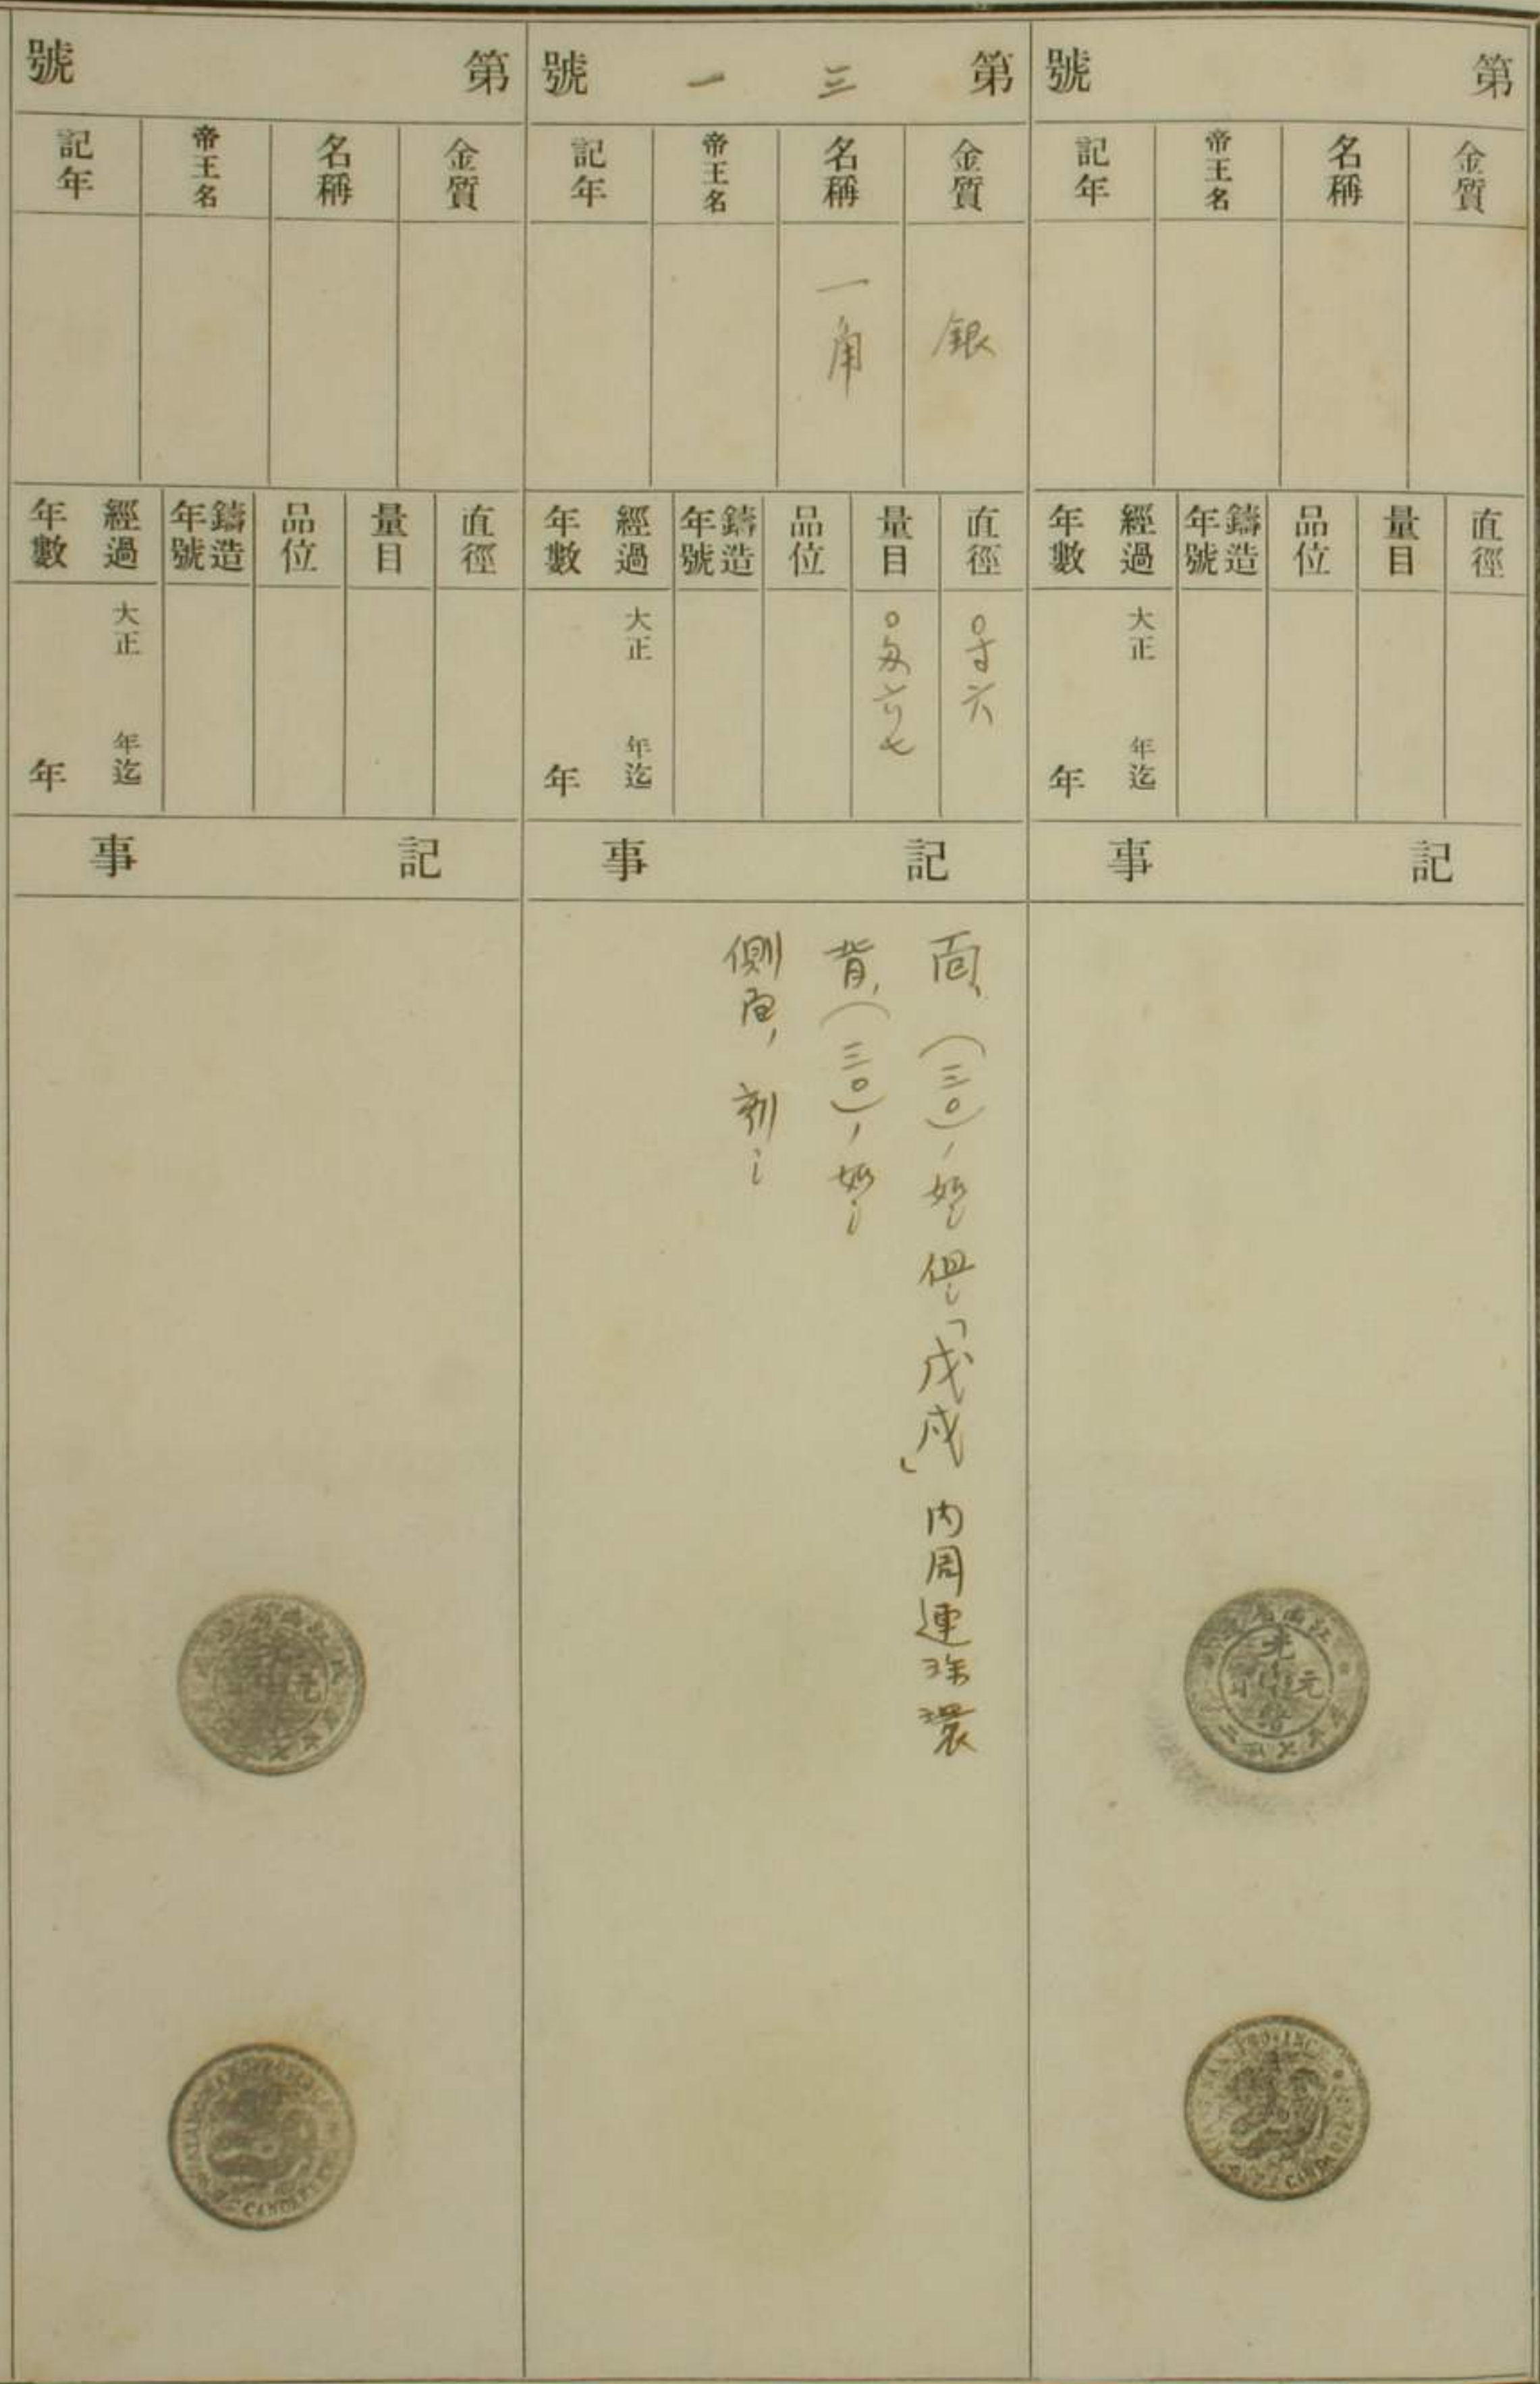 第 號
金質 名稱 帝王名 記年
直徑 量目 品位 鑄造年號 經過年數
大正 年迄
年
記事
江南省造
光緒元寶
NAN PROVINCE
第三一號
金質 名稱 帝王名 記年
銀
一角
直徑 量目 品位 鑄造年號 經過年數
〇寸六
〇匁六七
大正 年迄
年
記事
面、(三〇)、如し但し「戊戌」内周連珠環
背、(三〇)、如し
側面、刻し
第 號
金質 名稱 帝王名 記年
直徑 量目 品位 鑄造年號 經過年數
大正 年迄
年
記事